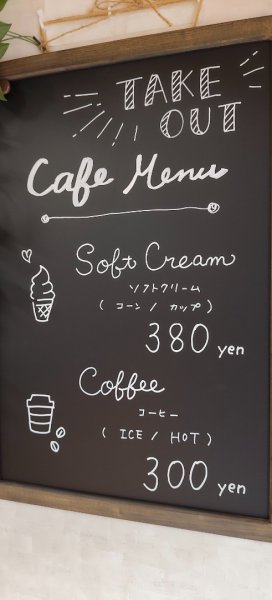 TAKE
OUT
Cafe Menu
Soft Cream
ソフトクリーム
( コーン / カップ )
380 yen
Coffee
コーヒー
( ICE / HOT )
300 yen